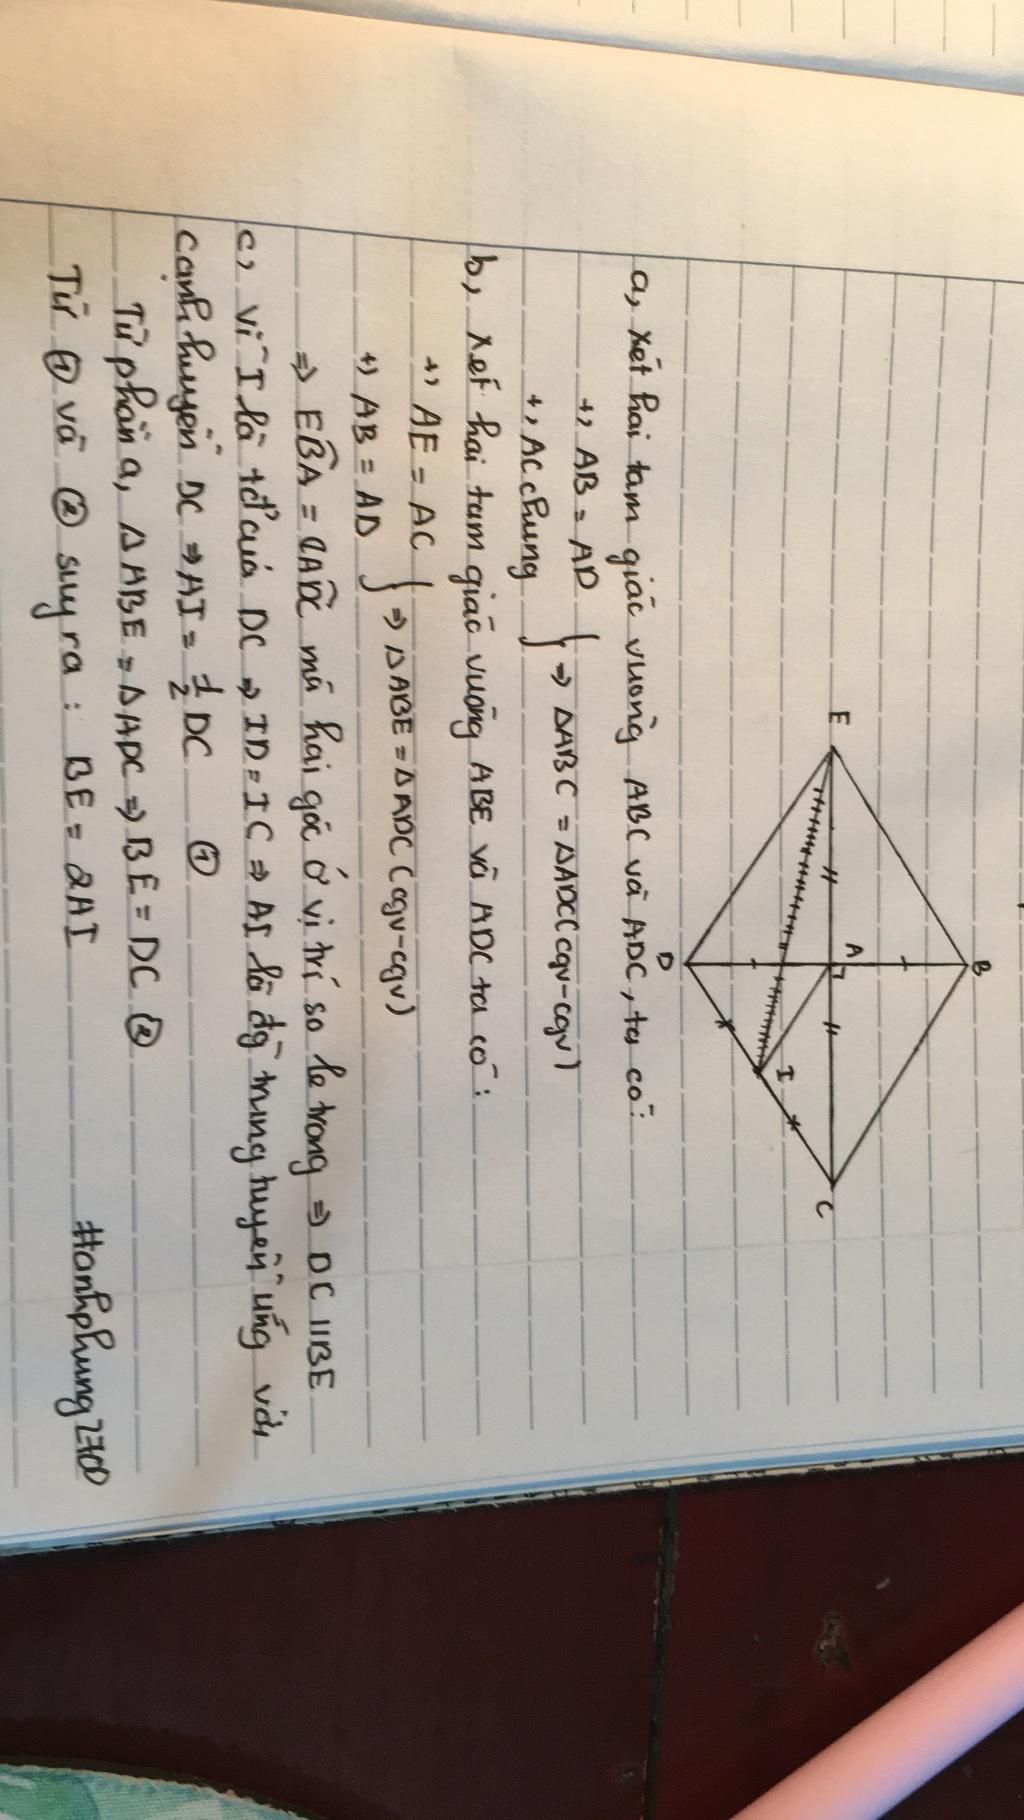 E
B
A
D
I
C
a, xét hai tam giác vuông ABC và ADC, ta có:
+, AB = AD
+, AC chung } => ΔABC = ΔADC (cgv-cgv)
b, xét hai tam giác vuông ABE và ADC ta có:
+, AE = AC
+, AB = AD } => ΔABE = ΔADC (cgv-cgv)
=> EB̂A = CAD̂C mà hai góc ở vị trí so le trong => DC // BE
c, vì I là tđ của DC => ID = IC => AI là đg trung tuyến ứng với
cạnh huyền DC => AI = 1/2 DC ①
Từ phần a, ΔABE = ΔADC => BE = DC ②
Từ ① và ② suy ra: BE = 2AI
#anhphung2700